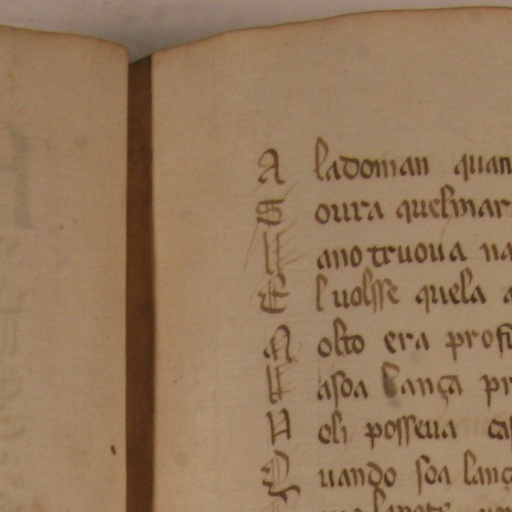 A ladoman quan
S oura quelmar
M ano truoua na
E l uolsse quela a
M olto era profu
L asoa lança pr
N oli posseua cas
Q uando soa lanç